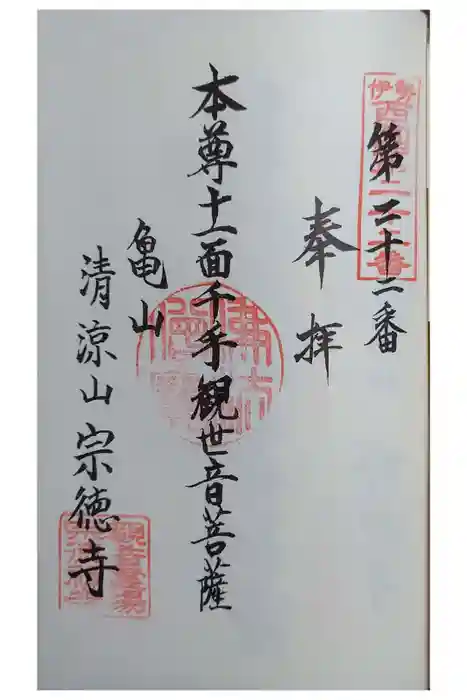 伊勢
西国二十二番
第二十二番
奉拝
本尊十一面千手観世音菩薩
亀山
清涼山宗徳寺